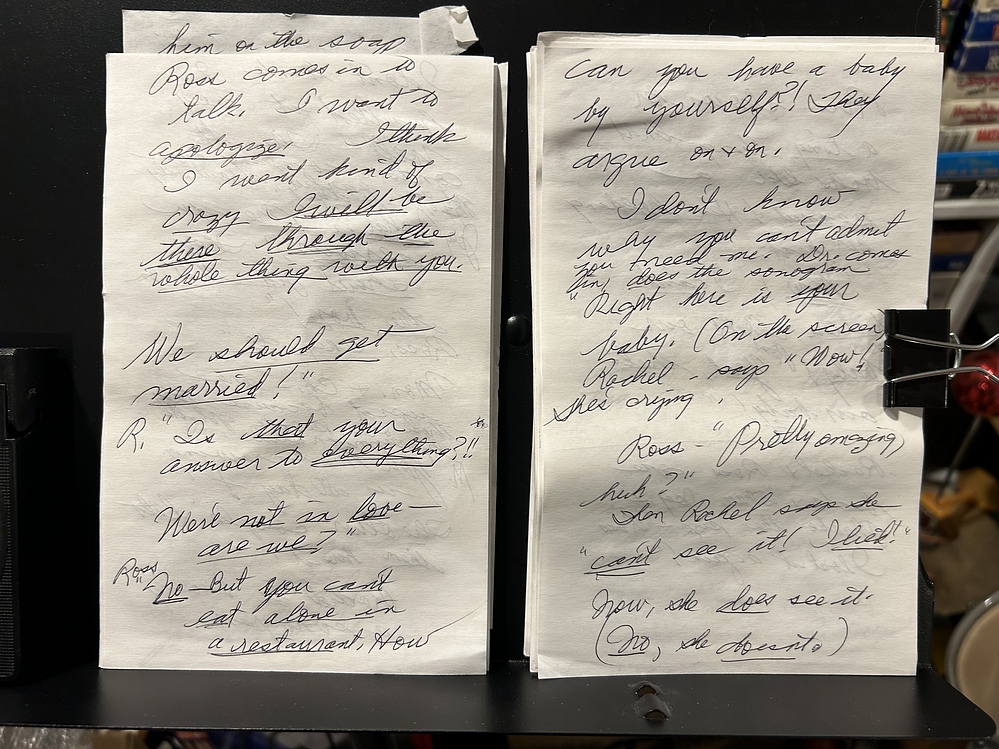 him on the soap
Ross comes in to
talk. I want to
apologize. I think
I went kind of
crazy I will be
there through the
whole thing with you.
We should get
married!"
R. "Is that your
answer to everything?!"
We're not in love—
are we?"
Ross
"No—But you can't
eat alone in
a restaurant. How
can you have a baby
by yourself?! They
argue on + on.
I don't know
why you can't admit
you need me. Dr. comes
in, does the sonogram
"Right here is your
baby. (On the screen)
Rachel - says "Wow!"
she's crying.
Ross - "Pretty amazing,
huh?"
Then Rachel says she
"can't see it! I lied!"
Now, she does see it.
(No, she doesn't.)